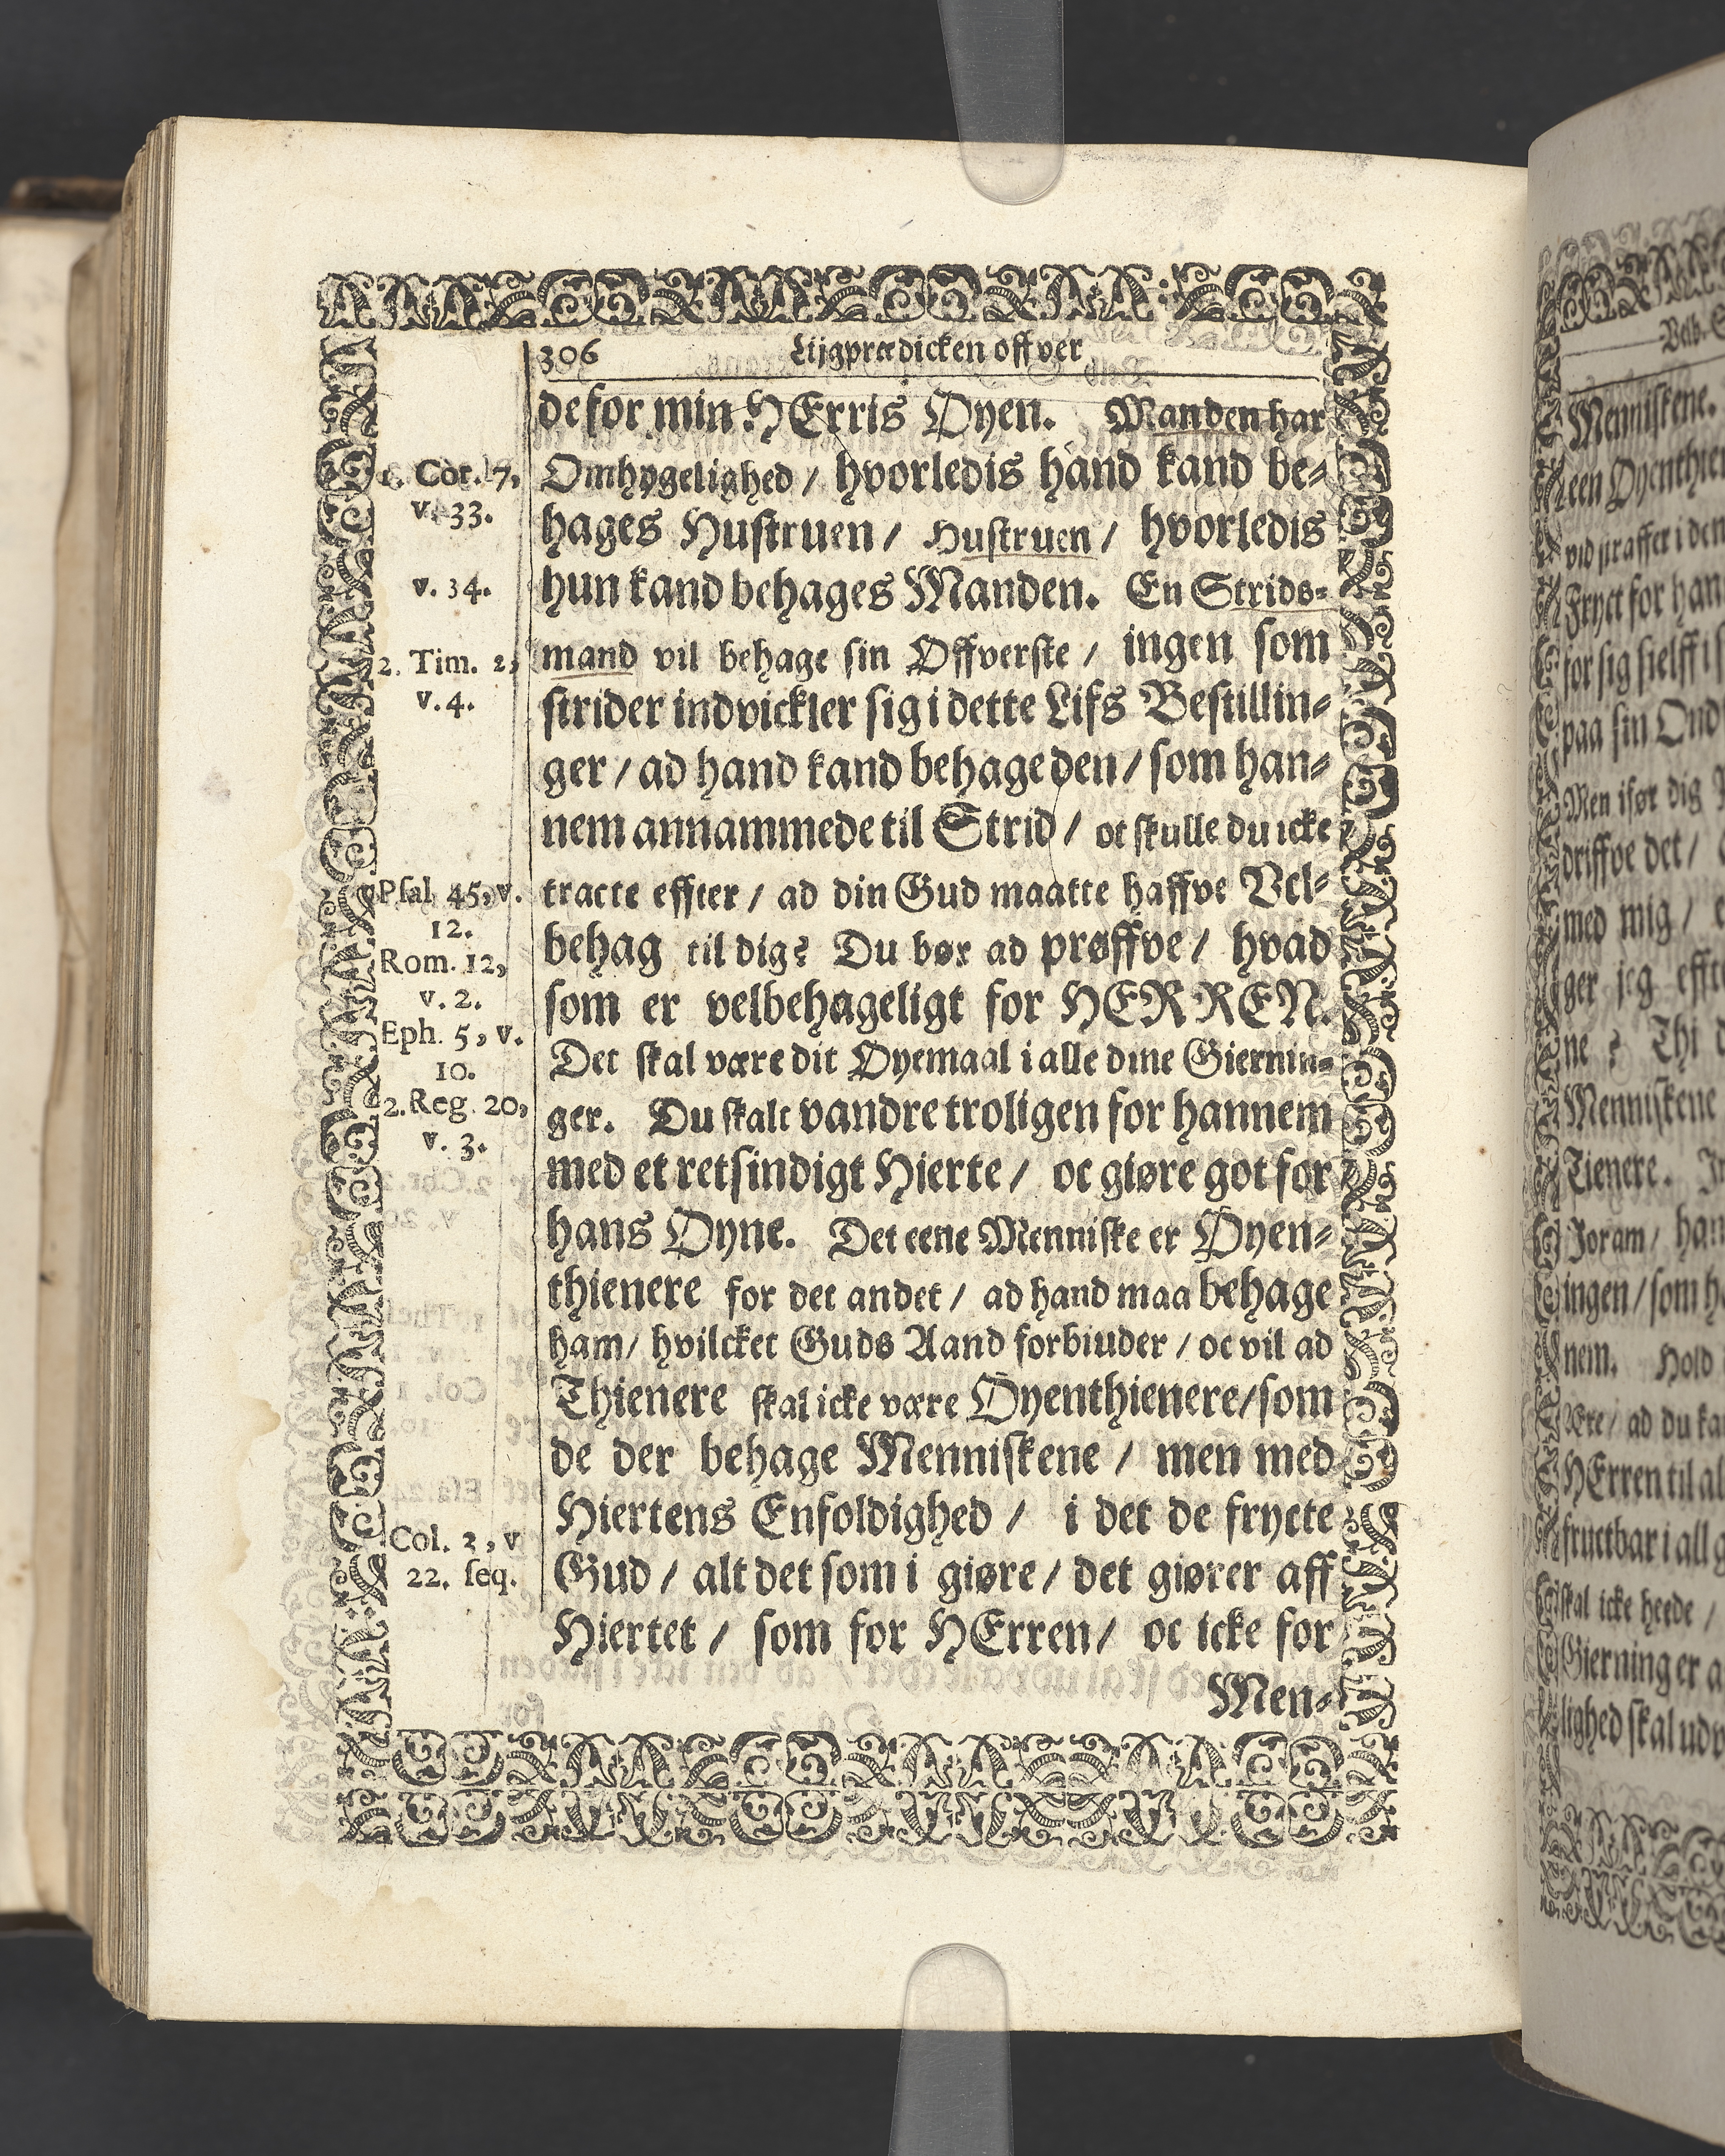 306 Lijgprædicken offver
de for min HErris Øyen. Manden har
Omhygelighed / hvorledis hand kand be-
hages Hustruen / Hustruen / hvorledis
hun kand behages Manden. En Strids-
mand vil behage sin Øffverste / ingen som
strider indvickler sig i dette Lifs Bestillin-
ger / ad hand kand behage den / som han-
nem annammede til Strid / oc skulle du icke
tracte effter / ad din Gud maatte haffve Vel-
behag til dig? Du bør ad prøffve / hvad
som er velbehageligt for HERREN.
Det skal være dit Øyemaal i alle dine Giernin-
ger. Du skalt vandre troligen for hannem
med et retsindigt Hierte / oc giøre got for
hans Øyne. Det eene Menniske er Øyen-
thienere for det andet / ad hand maa behage
ham / hvilcket Guds Aand forbiuder / oc vil ad
Thienere skal icke være Øyenthienere / som
de der behage Menniskene / men med
Hiertens Enfoldighed / i det de frycte
Gud / alt det som i giøre / det giører aff
Hiertet / som for HErren / oc icke for
Men-
1. Cor. 7,
v. 33.
v. 34.
2. Tim. 2,
v. 4.
Psal. 45, v.
12.
Rom. 12,
v. 2.
Eph. 5, v.
10.
2. Reg. 20,
v. 3.
Col. 3, v
22. seq.